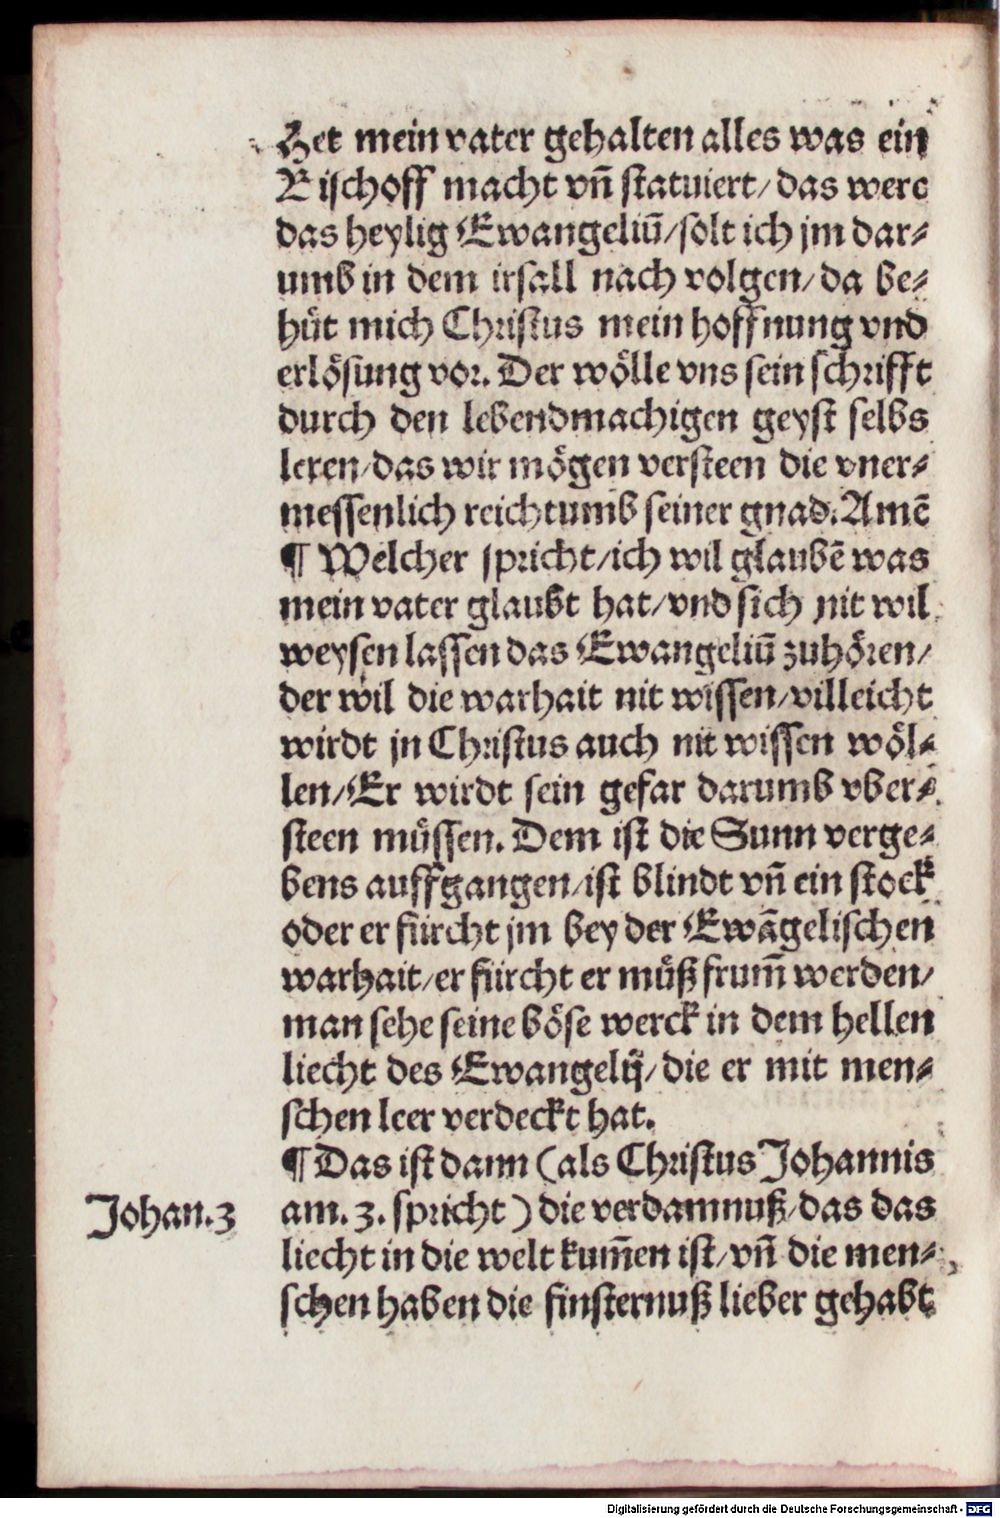 Het mein vater gehalten alles was ein
Bischoff macht vñ statuiert/ das were
das heylig Ewangeliũ/ solt ich jm dar⸗
umb in dem irsall nach volgen/ da be⸗
hüt mich Christus mein hoffnung vnd
erlösung vor. Der wölle vns sein schrifft
durch den lebendmachigen geyst selbs
leren/ das wir mögen versteen die vner⸗
messenlich reichtumb seiner gnad. Amẽ
¶ Welcher spricht/ ich wil glaubẽ was
mein vater glaubt hat/ vnd sich nit wil
weysen lassen das Ewangeliũ zuhören/
der wil die warhait nit wissen/ villeicht
wirdt jn Christus auch nit wissen wöl⸗
len/ Er wirdt sein gefar darumb vber⸗
steen müssen. Dem ist die Sunn verge⸗
bens auffgangen/ ist blindt vñ ein stock
oder er fürcht jm bey der Ewãgelischen
warhait/ er fürcht er müß frum̃ werden/
man sehe seine böse werck in dem hellen
liecht des Ewangelij/ die er mit men⸗
schen leer verdeckt hat.
¶ Das ist dann (als Christus Johannis
Johan.3 am. 3. spricht) die verdamnuß/ das das
liecht in die welt kum̃en ist/ vñ die men⸗
schen haben die finsternuß lieber gehabt
Digitalisierung gefördert durch die Deutsche Forschungsgemeinschaft - DFG